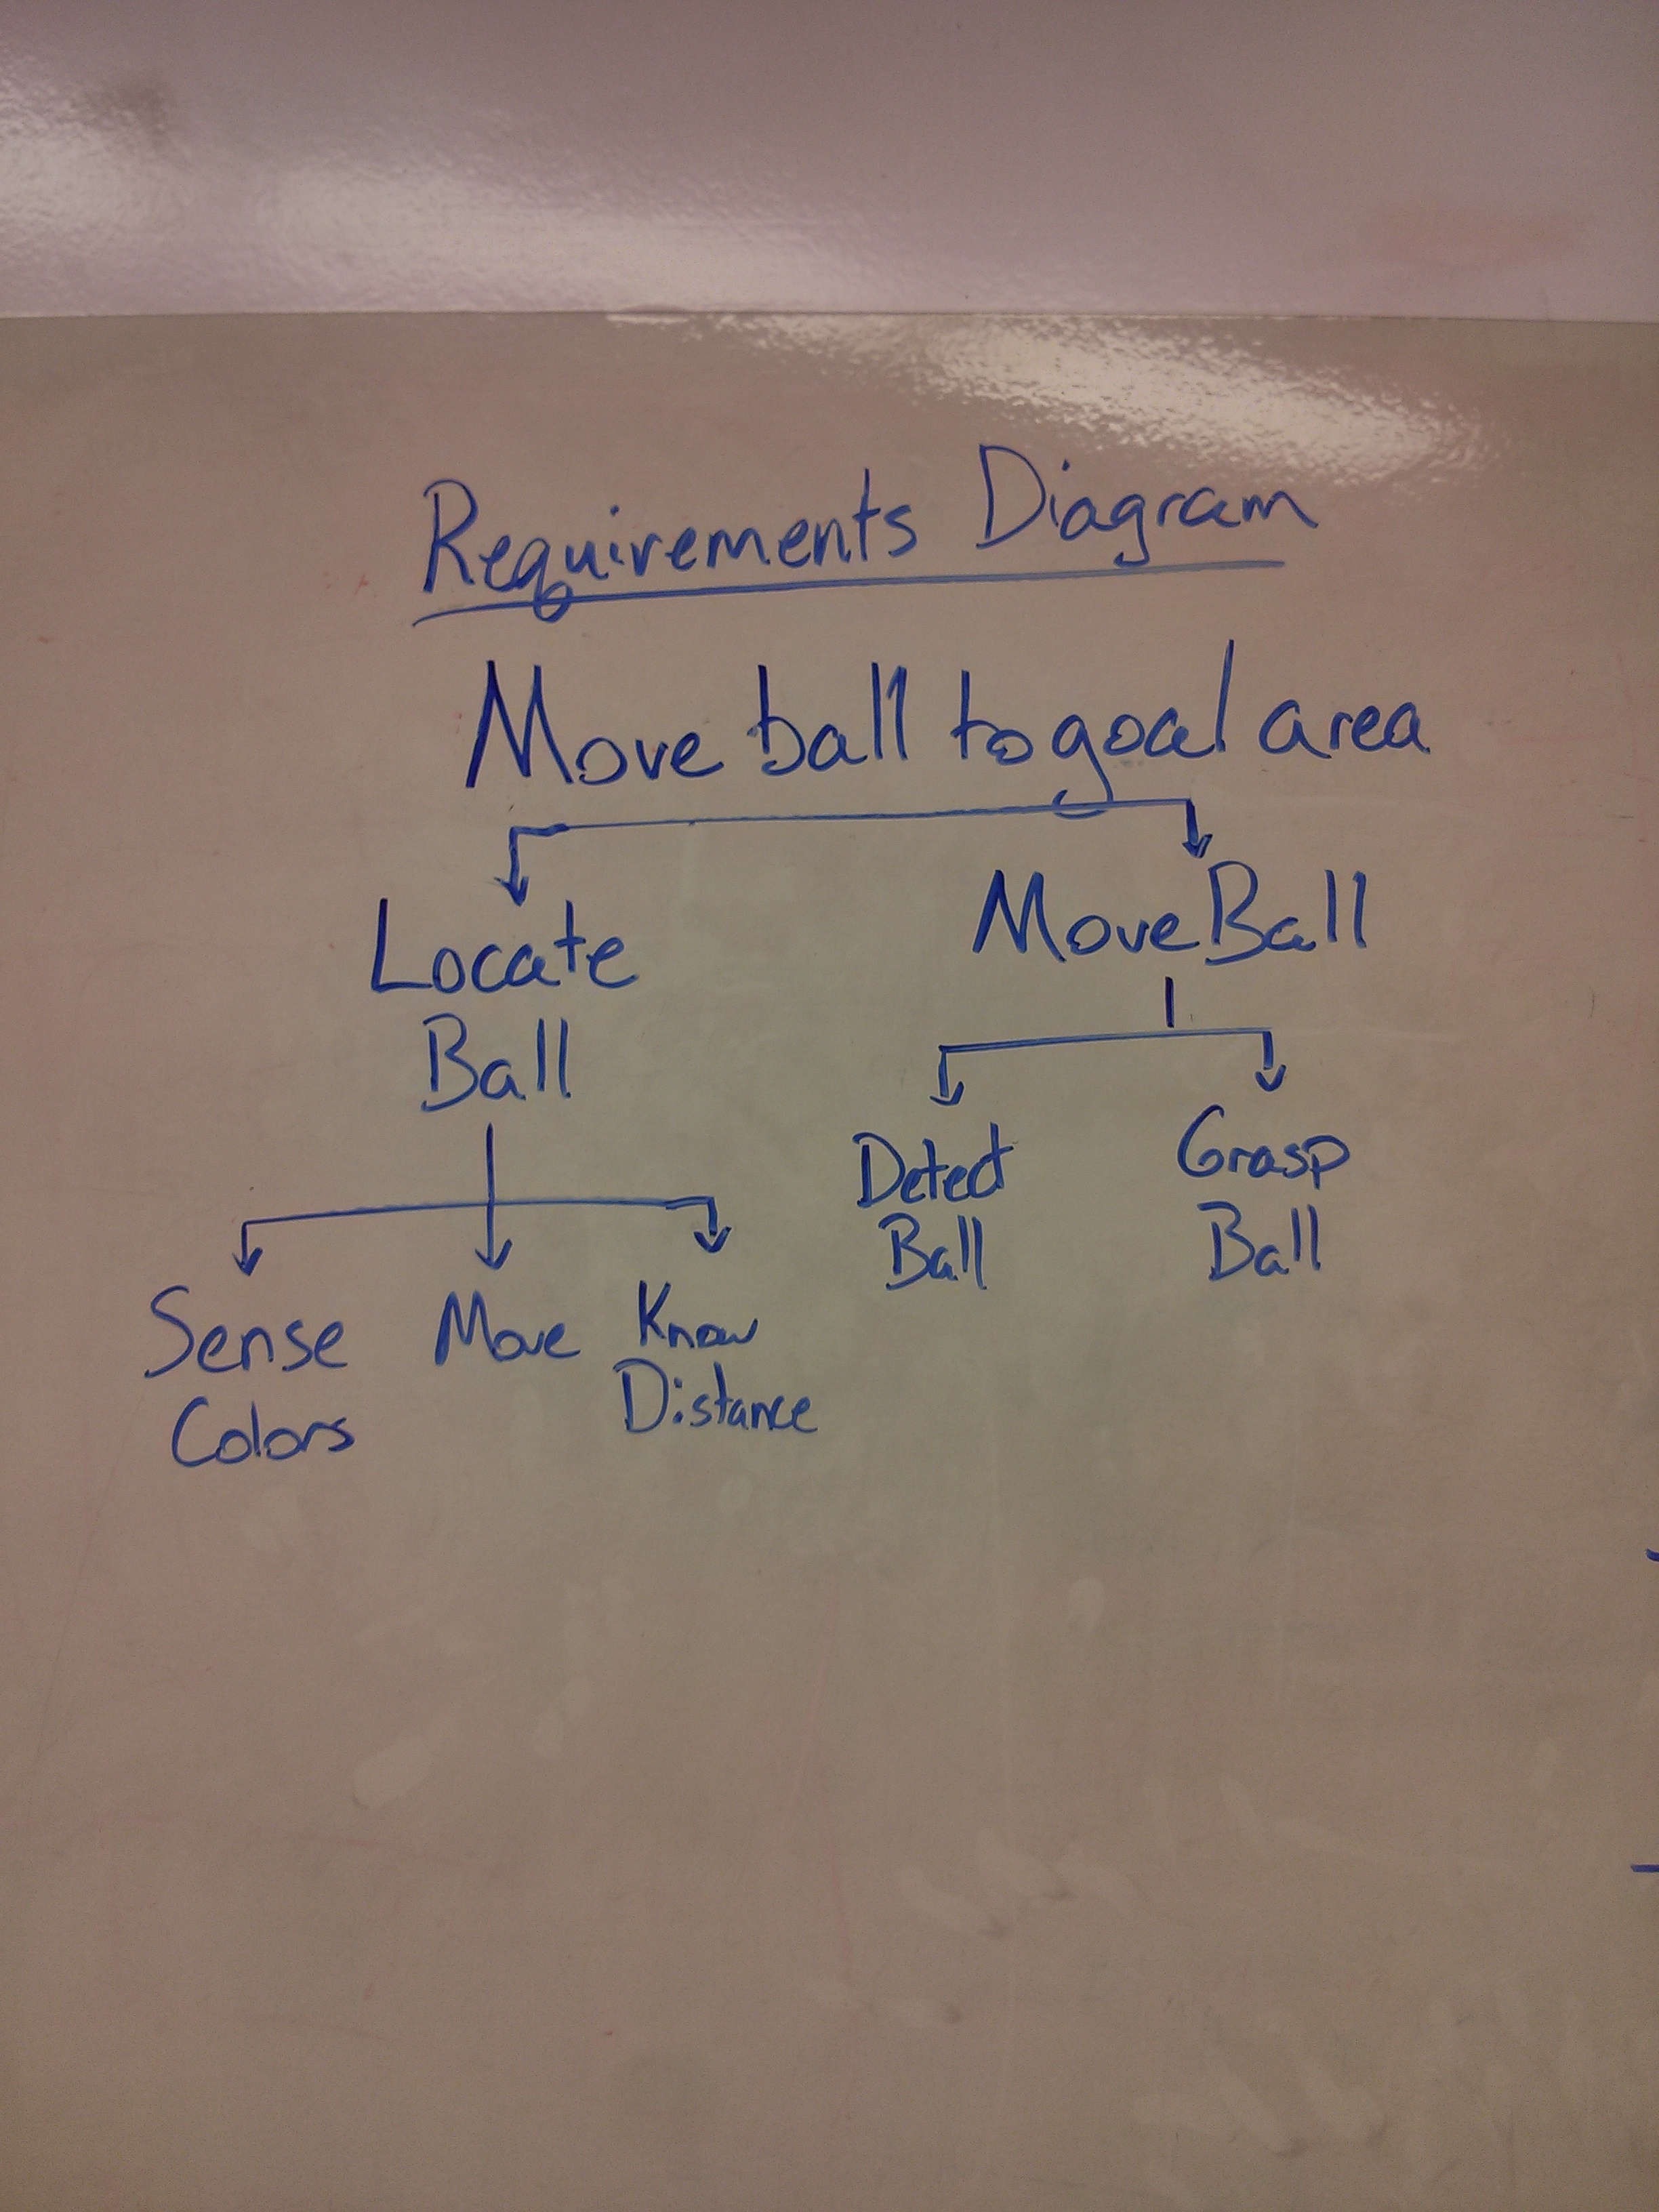 Requirements Diagram
Move ball to goal area
Locate
Ball
Move Ball
Sense
Colors
Move
Know
Distance
Detect
Ball
Grasp
Ball